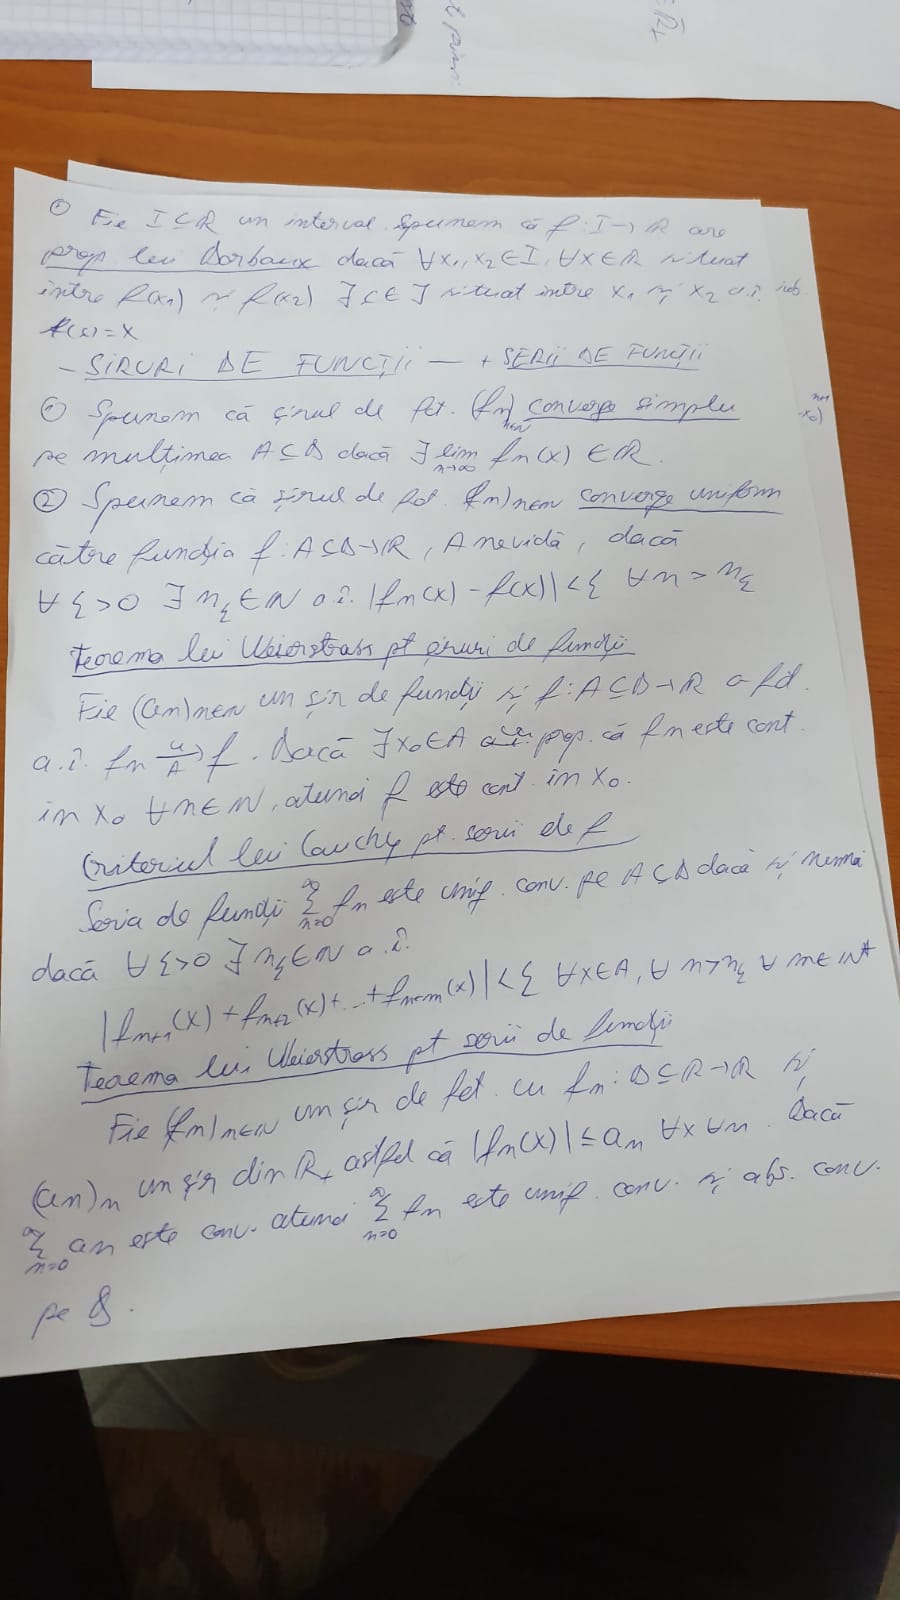 Fie I ⊆ R un interval. Spunem că f: I → R are
prop lui Darboux dacă ∀x₁, x₂ ∈ I, ∀x ∈ R situat
între f(x₁) și f(x₂) ∃ c ∈ I situat între x₁ și x₂ a.î.
f(c)=x
- SIRURI DE FUNCȚII — + SERII DE FUNCȚII
① Spunem că șirul de fct. (fn)n∈N converge simplu
pe mulțimea A⊆D dacă ∃ lim n→∞ fn(x) ∈ R.
② Spunem că șirul de fct. (fn)n∈N converge uniform
către funcția f: A⊆D→R, A nevidă, dacă
∀ε>0 ∃ nε∈N a.î. |fn(x) - f(x)| < ε ∀n > nε
Teorema lui Weierstrass pt șiruri de funcții
Fie (an)n∈N un șir de funcții și f: A⊆D→R o fct.
a.î. fn u/A→ f. Dacă ∃x₀∈A prop. că fn este cont.
in x₀ ∀n∈N, atunci f este cont. in x₀.
Criteriul lui Cauchy pt. serii de f
Seria de funcții ∞Σn=0 fn este unif. conv. pe A⊆D dacă și numai
dacă ∀ε>0 ∃ nε∈N a.î.
|fn+1(x) + fn+2(x)+...+fn+m(x)| < ε ∀x∈A, ∀n>nε ∀m∈N*
Teorema lui Weierstrass pt serii de funcții
Fie (fn)n∈N un șir de fct. cu fn: D⊆R→R și
(an)n un șir din R₊ astfel că |fn(x)| ≤ an ∀x ∀n. Dacă
∞Σn=0 an este conv. atunci ∞Σn=0 fn este unif. conv. și abs. conv.
pe D.